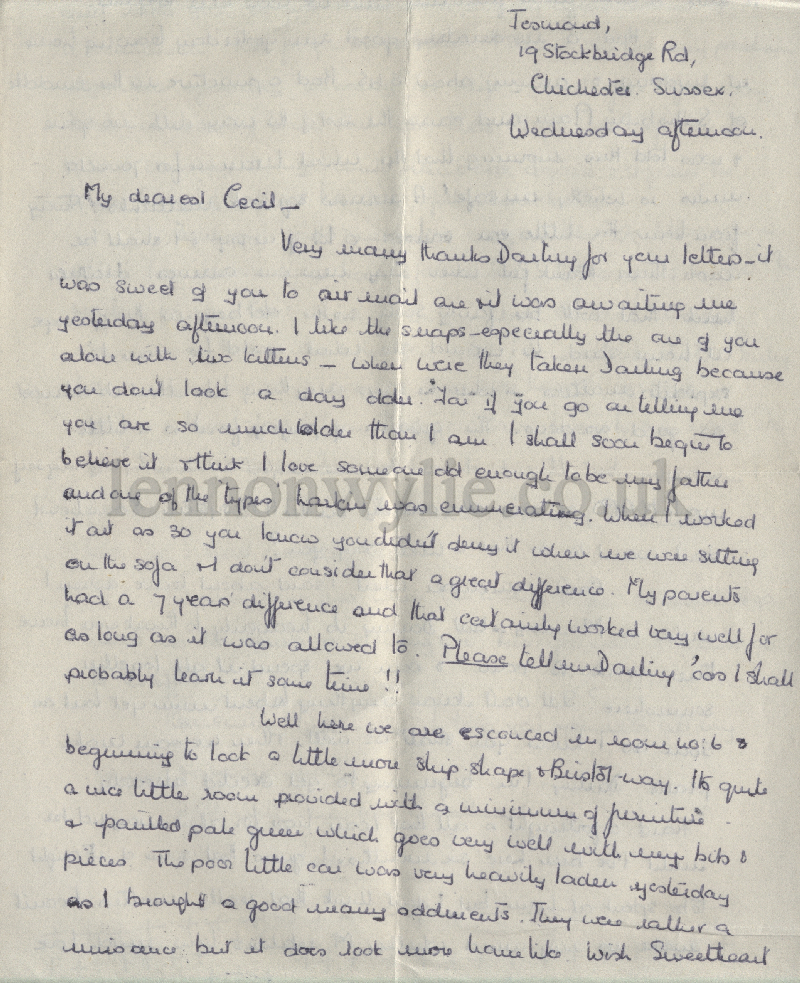 Jesmond,
19 Stockbridge Rd,
Chichester. Sussex.
Wednesday afternoon.
My dearest Cecil –
Very many thanks Darling for your letters – it
was sweet of you to air mail one & it was awaiting me
yesterday afternoon. I like the snaps – especially the one of you
alone with two kittens – when were they taken Darling because
you don't look a day older. if you go on telling me
you are so much older than I am I shall soon begin to
believe it & think I love someone old enough to be my father
and one of the 'types' was enumerating. When I worked
it out as 30 you know you didn't deny it when we were sitting
on the sofa & I don't consider that a great difference. My parents
had a 7 years' difference and that certainly worked very well for
as long as it was allowed to. Please tell me Darling 'cos I shall
probably learn it some time!!
Well here we are esconced in room no: 6 &
beginning to look a little more ship shape & Bristol-way. Its quite
a nice little room provided with a minimum of furniture
& painted pale green which goes very well with my bits &
pieces. The poor little car was very heavily laden yesterday
as I brought a good many oddments. They were rather a
nuisance but it does look more homelike. Wish Sweetheart
lennonwylie.co.uk